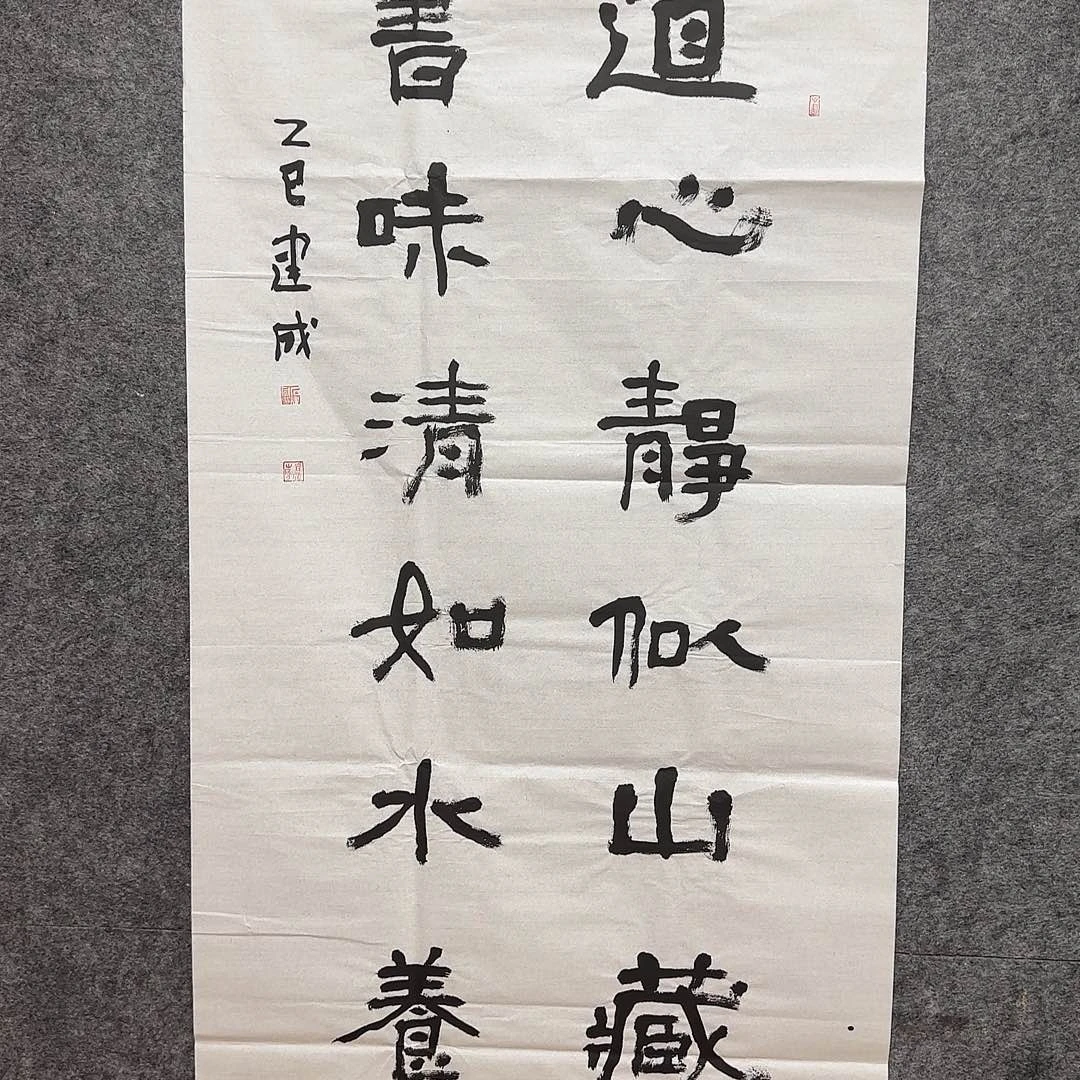 道心靜似山藏
書味清如水養
乙巳建成